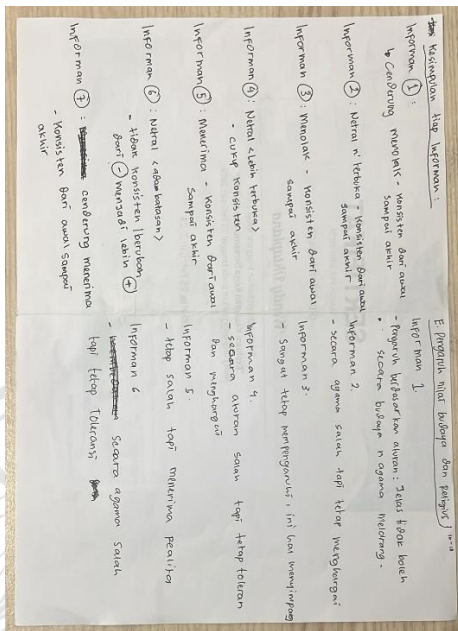 Kesimpulan tiap Informan :
Informan ① :
↳ Cenderung menolak - Konsisten dari awal
sampai akhir
Informan ② : Netral n' terbuka - Konsisten dari awal
sampai akhir
Informan ③ : Menolak - Konsisten dari awal
sampai akhir
Informan ④ : Netral <lebih terbuka>
- cukup konsisten
Informan ⑤ : Menerima - Konsisten dari awal
sampai akhir
Informan ⑥ : Netral <ada batasan>
- tidak konsisten / berubah
dari ⊖ menjadi lebih ⊕
Informan ⑦ : cenderung menerima
- Konsisten dari awal sampai
akhir
E. Pengaruh nilai budaya dan Religius
Informan 1.
- Pengaruh berdasarkan aturan : Jelas tidak boleh
secara budaya n agama melarang.
Informan 2.
- secara agama salah tapi tetap menghargai
Informan 3.
- Sangat tetap mempengaruhi, ini hal menyimpang
Informan 4.
- secara aturan salah tapi tetap toleran
dan menghargai
Informan 5.
- tetap salah tapi menerima realita
Informan 6
- secara agama salah
tapi tetap Toleransi